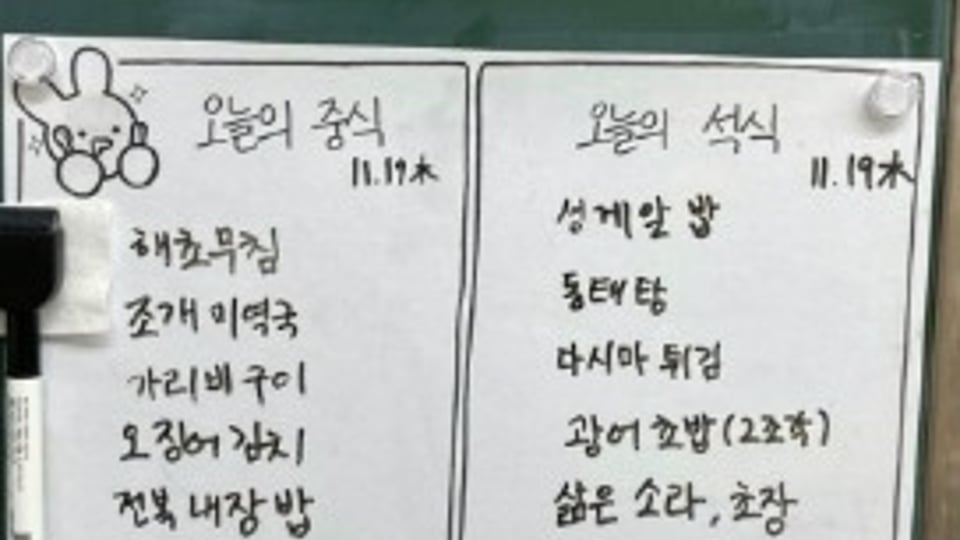 오늘의 중식
11.19水
해초무침
조개 미역국
가리비 구이
오징어 김치
전복 내장 밥
오늘의 석식
11.19水
성게알 밥
동태탕
다시마 튀김
광어 초밥 (2조각)
삶은 소라, 초장